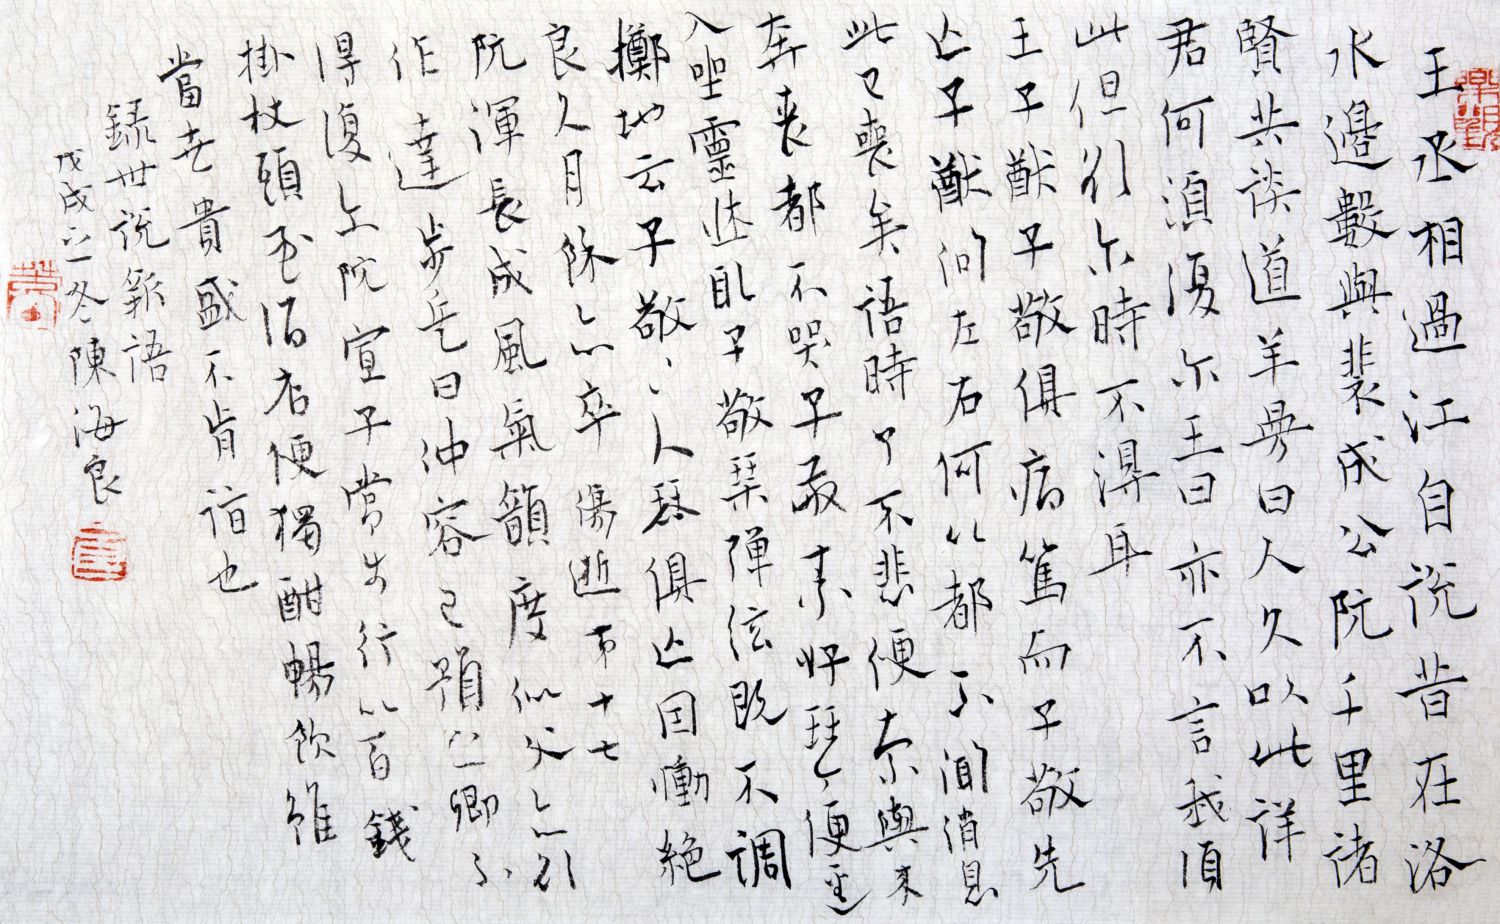 王丞相過江自説昔在洛
水邊數與裴成公阮千里諸
賢共談道羊曼曰人久以此詳
君何須復尔王曰亦不言我須
此但欲尔時不得耳
王子猷子敬俱病篤而子敬先
亡子猷問左右何以都不聞消息
此已喪矣語時了不悲便索輿来
奔喪都不哭子敬素好琴便徑
入坐靈牀取子敬琴彈弦既不調
擲地云子敬〻人琴俱亡因慟絶
良久月餘亦卒 傷逝第十七
阮渾長成風氣韻度似父亦欲
作達步兵曰仲容已預之卿不
得復尔阮宣子常步行以百錢
掛杖頭至酒店便獨酣暢飲雖
當世貴盛不肯詣也
録世説新語
戊戌之冬陳海良